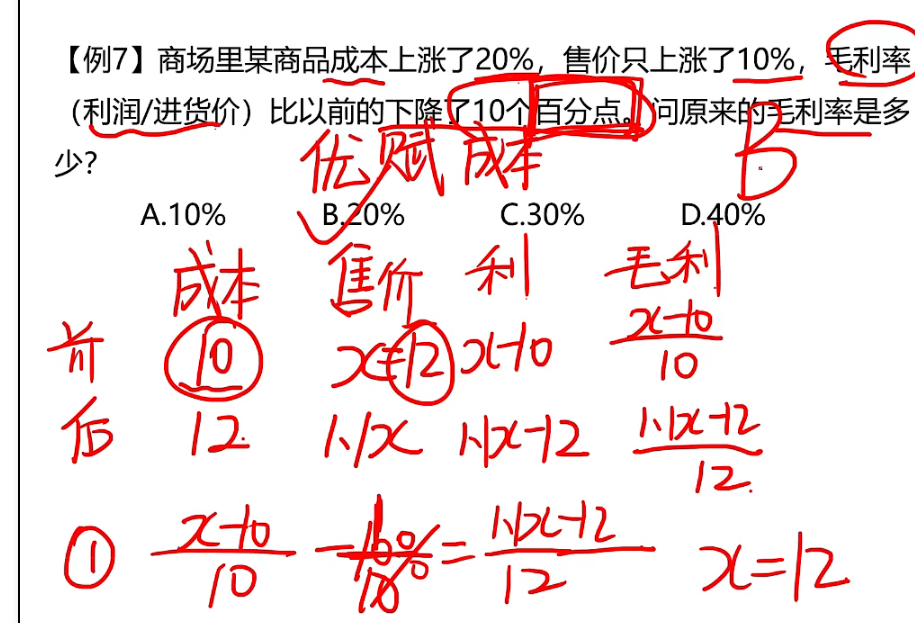 【例7】商场里某商品成本上涨了20%，售价只上涨了10%，毛利率
（利润/进货价）比以前的下降了10个百分点。问原来的毛利率是多
少？
优赋成本 B
A.10% B.20% C.30% D.40%
成本 售价 利 毛利
前 10 x=12 x-10 x-10/10
后 12 1.1x 1.1x-12 1.1x-12/12
① x-10/10 - 10% = 1.1x-12/12 x=12